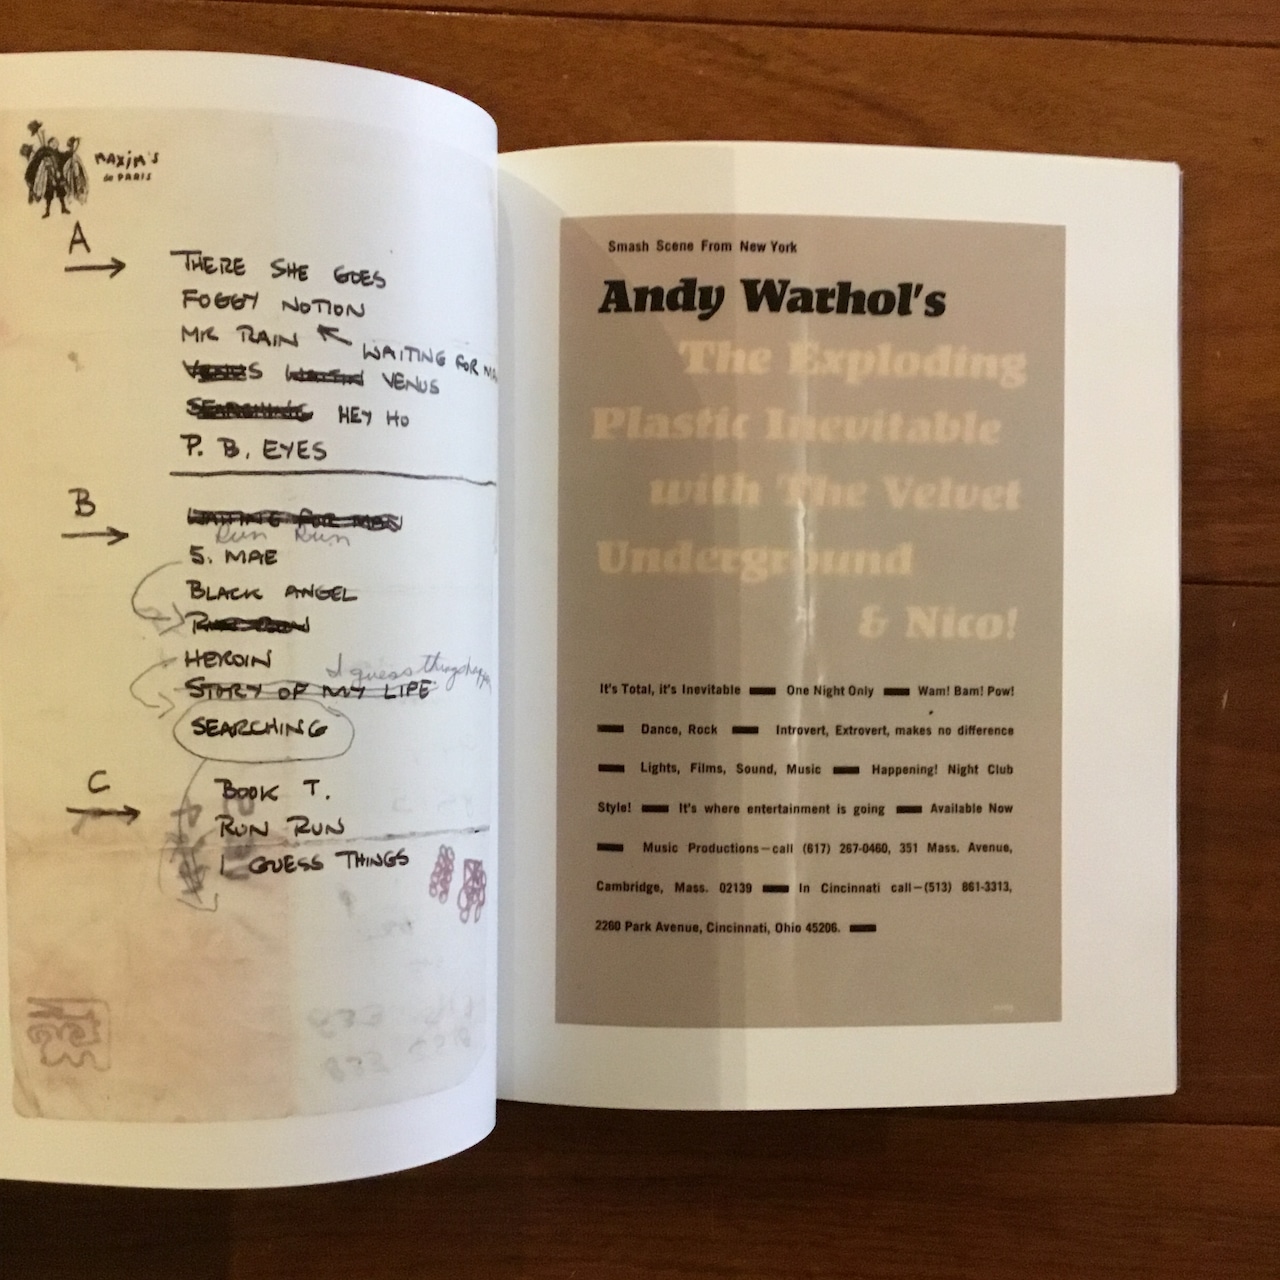 MAXIM'S
de PARIS
A
THERE SHE GOES
FOGGY NOTION
MR RAIN
WAITING FOR
VENUS VENUS
SEARCHING HEY HO
P. B. EYES
B
WAITING FOR MAN
Run Run
S. MAE
BLACK ANGEL
RUN RUN
HEROIN
I guess things
STORY OF MY LIFE
SEARCHING
C
BOOK T.
RUN RUN
I GUESS THINGS
Smash Scene From New York
Andy Warhol's
The Exploding
Plastic Inevitable
with The Velvet
Underground
& Nico!
It's Total, it's Inevitable — One Night Only — Wam! Bam! Pow!
— Dance, Rock — Introvert, Extrovert, makes no difference
— Lights, Films, Sound, Music — Happening! Night Club
Style! — It's where entertainment is going — Available Now
— Music Productions—call (617) 267-0460, 351 Mass. Avenue,
Cambridge, Mass. 02139 — In Cincinnati call—(513) 861-3313,
2260 Park Avenue, Cincinnati, Ohio 45206. —